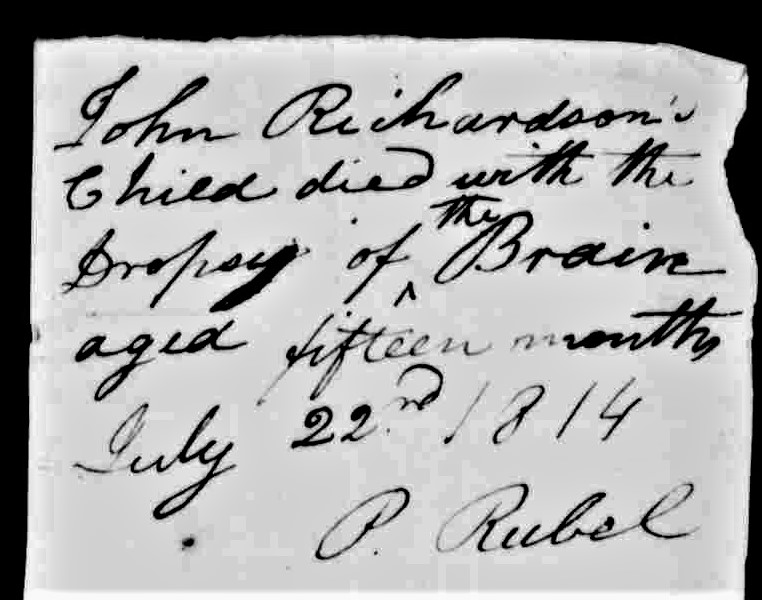 John Richardson's
Child died with the
Dropsy of the Brain
aged fifteen months
July 22nd 1814
P. Rubel